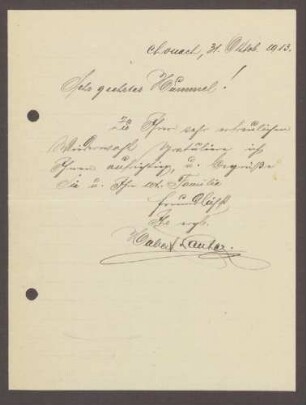 31. Oktob. 1913.
Sehr geehrter Hummel!
Zu Ihrer sehr erfreulichen
Wiederwahl gratuliere ich
Ihnen aufrichtig, u. begrüße
Sie u. Ihr Familie
freundlichst
Ihr ergb.